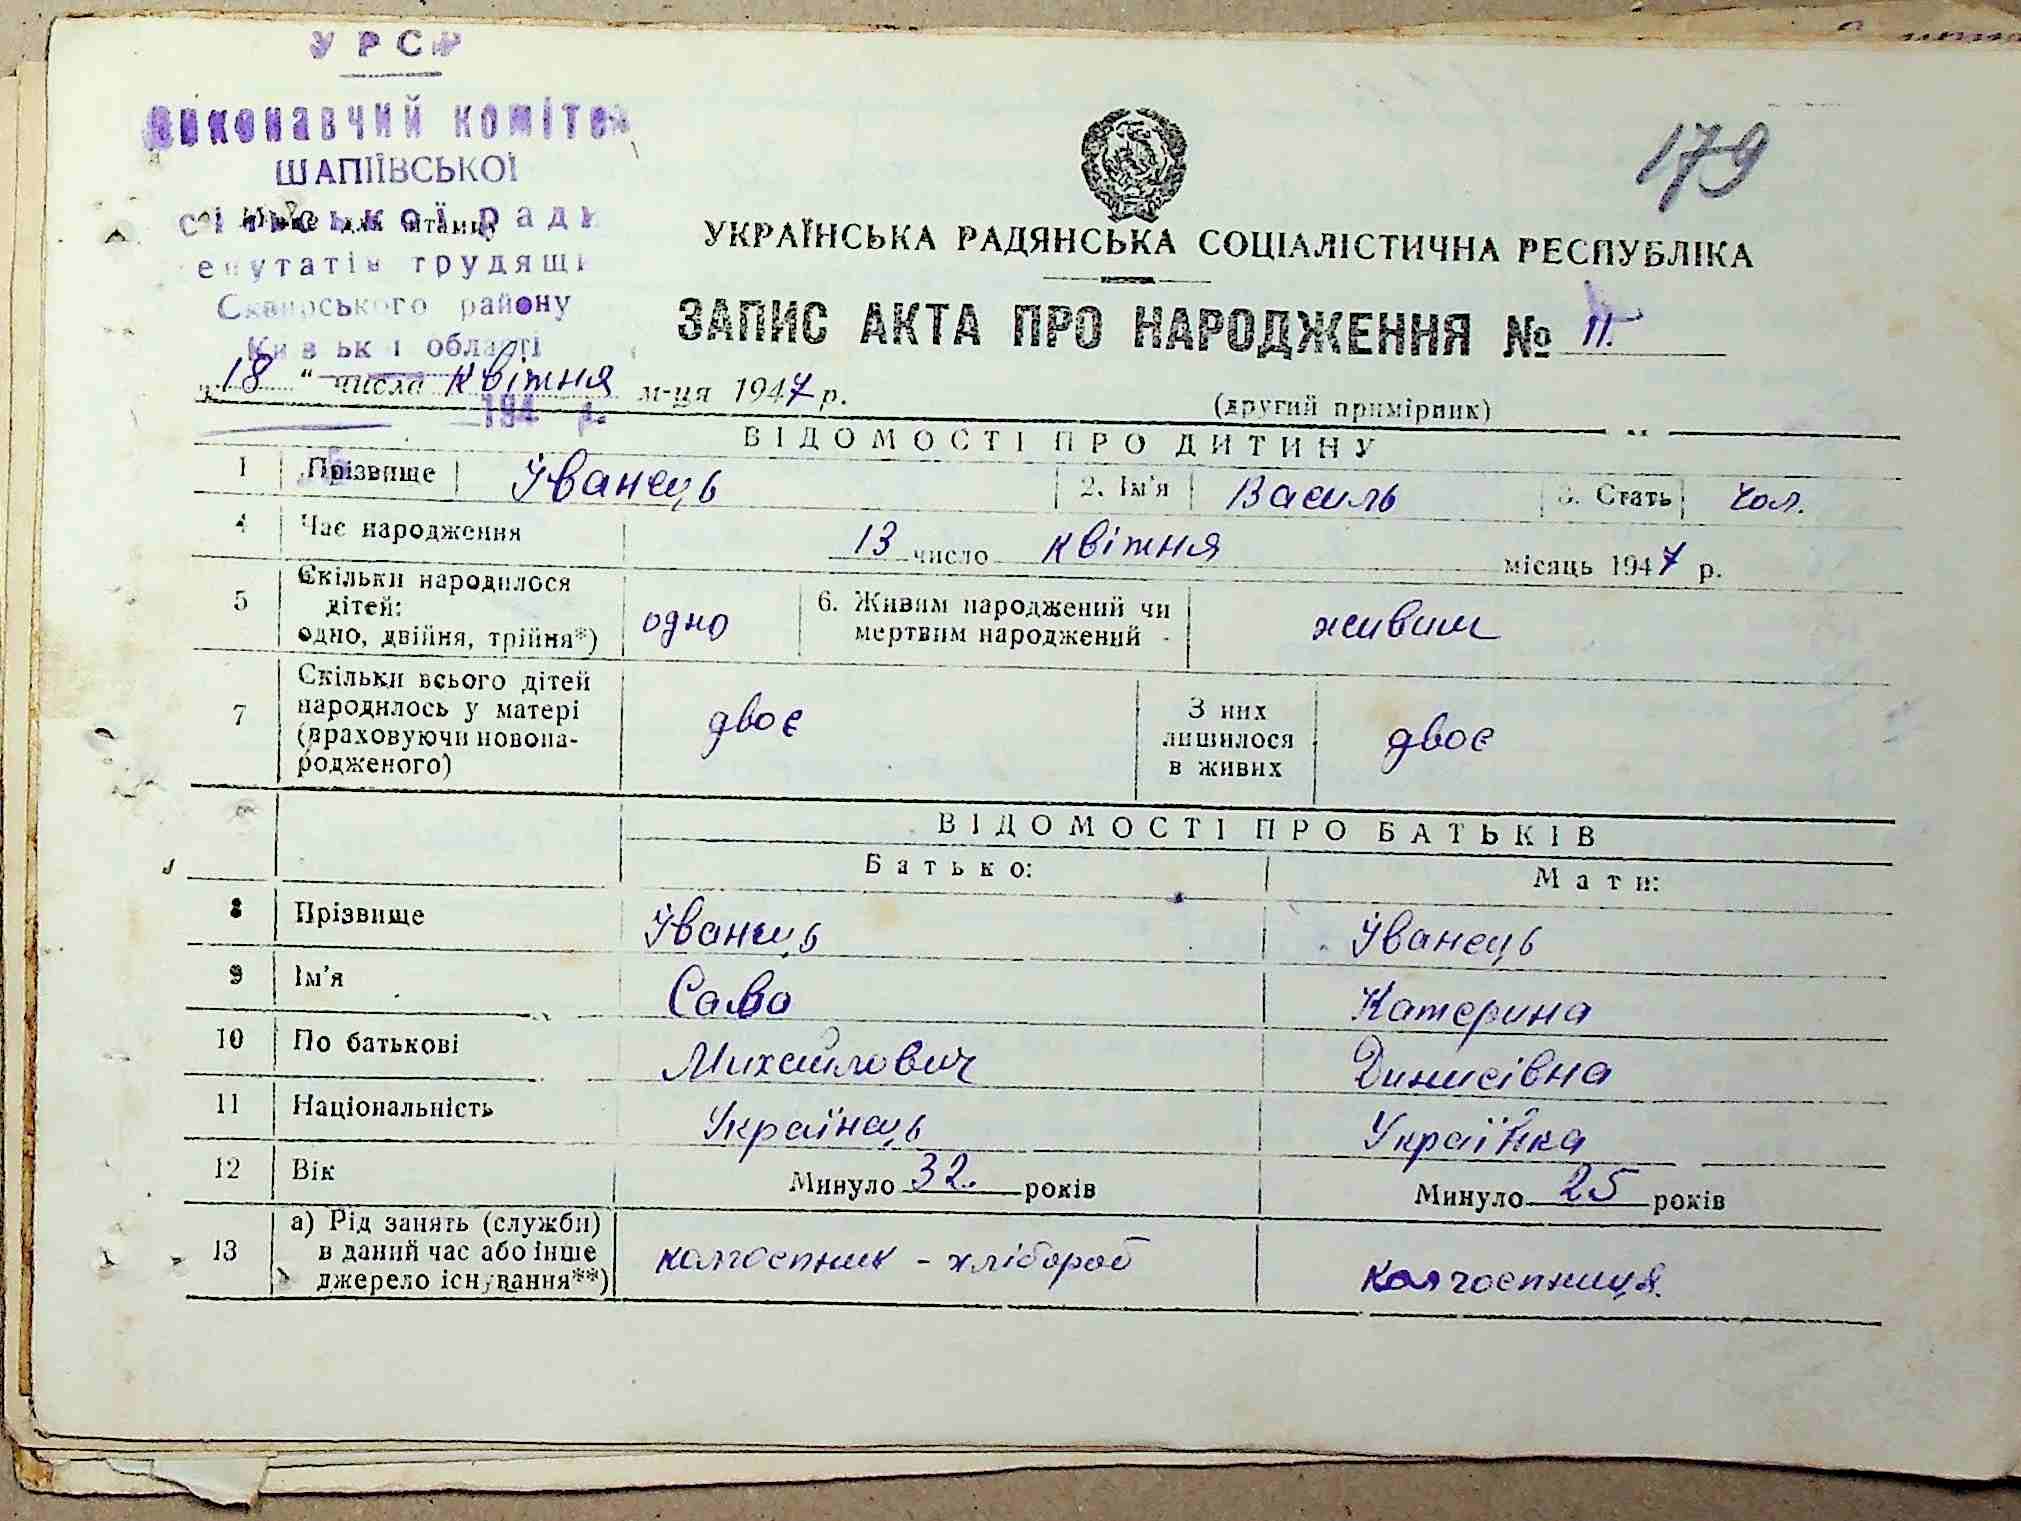 УРСР
Виконавчий комітет
179
ШАПІЇВСЬКОЇ
сільської ради
Місце для штампу
депутатів трудящих
УКРАЇНСЬКА РАДЯНСЬКА СОЦІАЛІСТИЧНА РЕСПУБЛІКА
Сквирського району
Київської області
ЗАПИС АКТА ПРО НАРОДЖЕННЯ № 11.
„18" числа квітня м-ця 1947 р.
194 р.
(другий примірник)
ВІДОМОСТІ ПРО ДИТИНУ
1 Прізвище Іванець 2. Ім'я Василь 3. Стать чол.
4 Час народження 13 число квітня місяць 1947 р.
5 Скільки народилося дітей: одно, двійня, трійня*) одно 6. Живим народжений чи мертвим народжений живим
7 Скільки всього дітей народилось у матері (враховуючи новонародженого) двоє З них лишилося в живих двоє
ВІДОМОСТІ ПРО БАТЬКІВ
Батько: Мати:
8 Прізвище Іванець Іванець
9 Ім'я Сава Катерина
10 По батькові Михайлович Динисівна
11 Національність Українець Українка
12 Вік Минуло 32. років Минуло 25 років
13 а) Рід занять (служби) в даний час або інше джерело існування**) колгоспник - хлібороб колгоспниця.